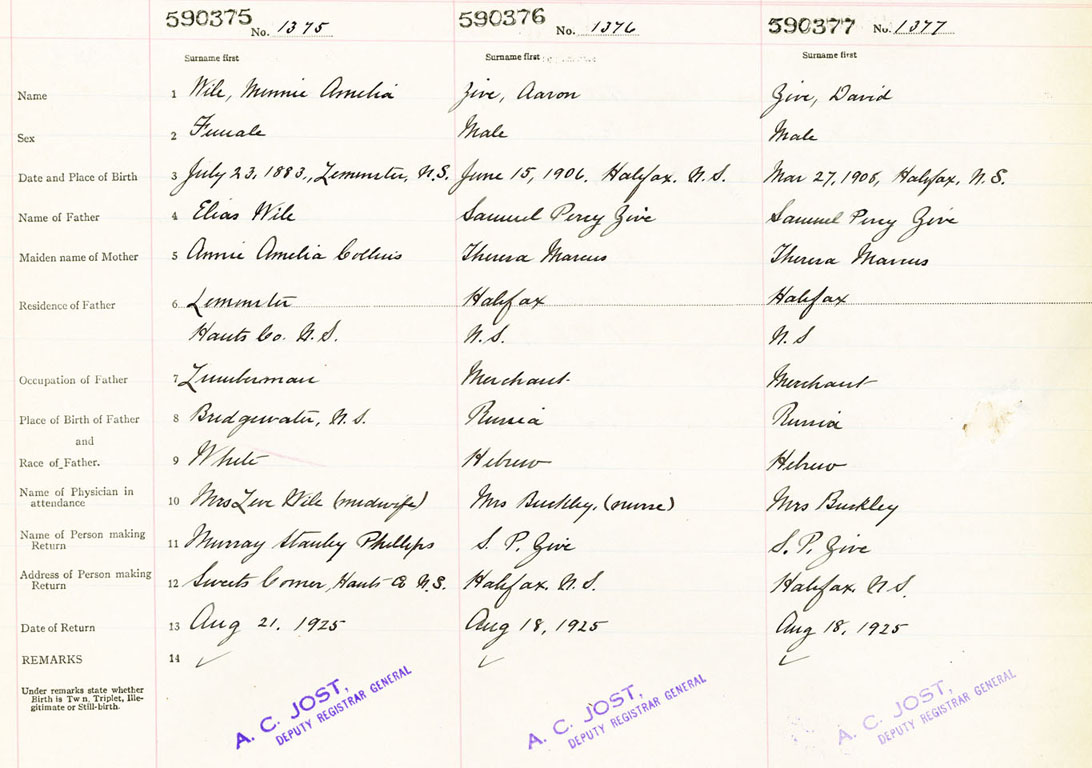 590375 No. 1375
590376 No. 1376
590377 No. 1377
Surname first
Surname first
Surname first
Name 1 Wile, Minnie Amelia Zive, Aaron Zive, David
Sex 2 Female Male Male
Date and Place of Birth 3 July 23, 1883, Leminster, N.S. June 15, 1906. Halifax. N.S. Mar 27, 1908, Halifax, N.S.
Name of Father 4 Elias Wile Samuel Percy Zive Samuel Percy Zive
Maiden name of Mother 5 Annie Amelia Collins Theresa Marcus Theresa Marcus
Residence of Father 6 Leminster Halifax Halifax
Hants Co. N.S. N.S. N.S
Occupation of Father 7 Lumberman Merchant Merchant
Place of Birth of Father 8 Bridgewater, N.S. Russia Russia
and
Race of Father. 9 White Hebrew Hebrew
Name of Physician in
attendance 10 Mrs Wile (midwife) Mrs Buckley, (nurse) Mrs Buckley
Name of Person making
Return 11 Murray Stanley Phillips S. P. Zive S. P. Zive
Address of Person making
Return 12 Sweets Corner, Hants Co N.S. Halifax. N.S. Halifax. N.S.
Date of Return 13 Aug 21, 1925 Aug 18, 1925 Aug 18, 1925
REMARKS 14 ✓ ✓ ✓
Under remarks state whether
Birth is Twn, Triplet, Ille-
gitimate or Still-birth.
A. C. JOST,
DEPUTY REGISTRAR GENERAL
A. C. JOST,
DEPUTY REGISTRAR GENERAL
A. C. JOST,
DEPUTY REGISTRAR GENERAL